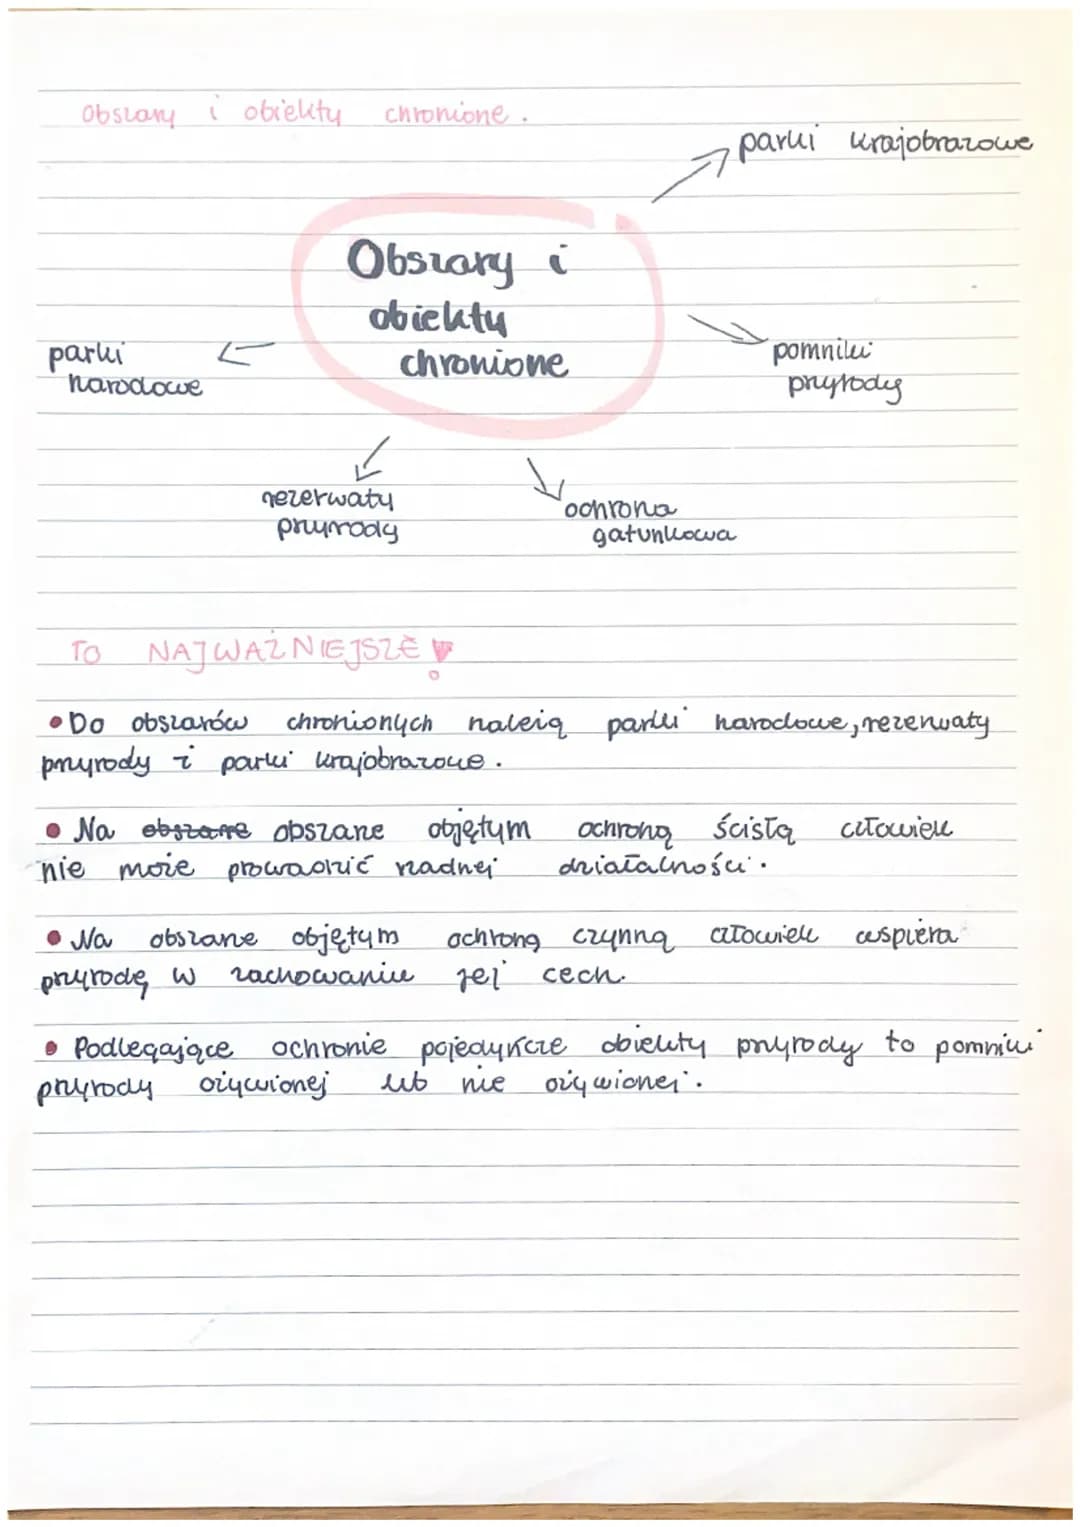 Obszary i obiekty chronione.
parki krajobrazowe
Obszary i
obiekty
chronione
parki
narodowe
pomniki
przyrody
rezerwaty
przyrody
ochrona
gatunkowa
TO NAJWAŻNIEJSZE!
• Do obszarów chronionych należą parki narodowe, rezerwaty
przyrody i parki krajobrazowe.
• Na obszarze obszarze objętym ochroną ścisłą człowiek
nie może prowadzić żadnej działalności.
• Na obszarze objętym ochroną czynną człowiek wspiera
przyrodę w zachowaniu jej cech.
• Podlegające ochronie pojedyńcze obiekty przyrody to pomniki
przyrody ożywionej lub nie ożywionej.